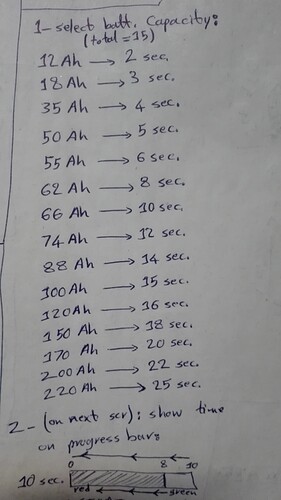 1- select batt. Capacity:
(total = 15)
12 Ah → 2 sec.
18 Ah → 3 sec.
35 Ah → 4 sec.
50 Ah → 5 sec.
55 Ah → 6 sec.
62 Ah → 8 sec.
66 Ah → 10 sec.
74 Ah → 12 sec.
88 Ah → 14 sec.
100 Ah → 15 sec.
120 Ah → 16 sec.
150 Ah → 18 sec.
170 Ah → 20 sec.
200 Ah → 22 sec.
220 Ah → 25 sec.
2- (on next scr): show time
on progress bar:
0 8 10
10 sec.
red green